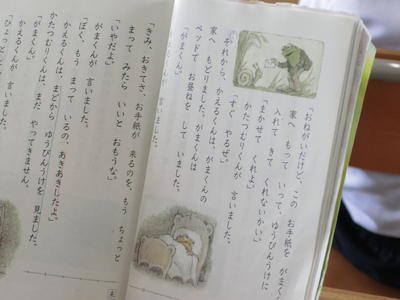 「おねがいだけど、この お手紙を がまく
家へ もって いって、ゆうびんうけに
入れて きて くれないかい。」
「まかせて くれよ。」
かたつむりくんが 言いました。
「すぐ やるぜ。」
それから、かえるくんは、がまくんの
家へ もどりました。がまくんは
ベッドで お昼ねを して いました。
「がまくん。」
「きみ、おきてさ、お手紙が 来るのを、もう ちょっと
まって みたら いいと おもうな。」
「いやだよ。」
がまくんが 言いました。
「ぼく、もう まって いるの、あきあきしたよ。」
かえるくんは、まどから ゆうびんうけを 見ました。
かたつむりくんは、まだ やってきません。
「がまくん。」
かえるくんが 言いました。
「ひょっと